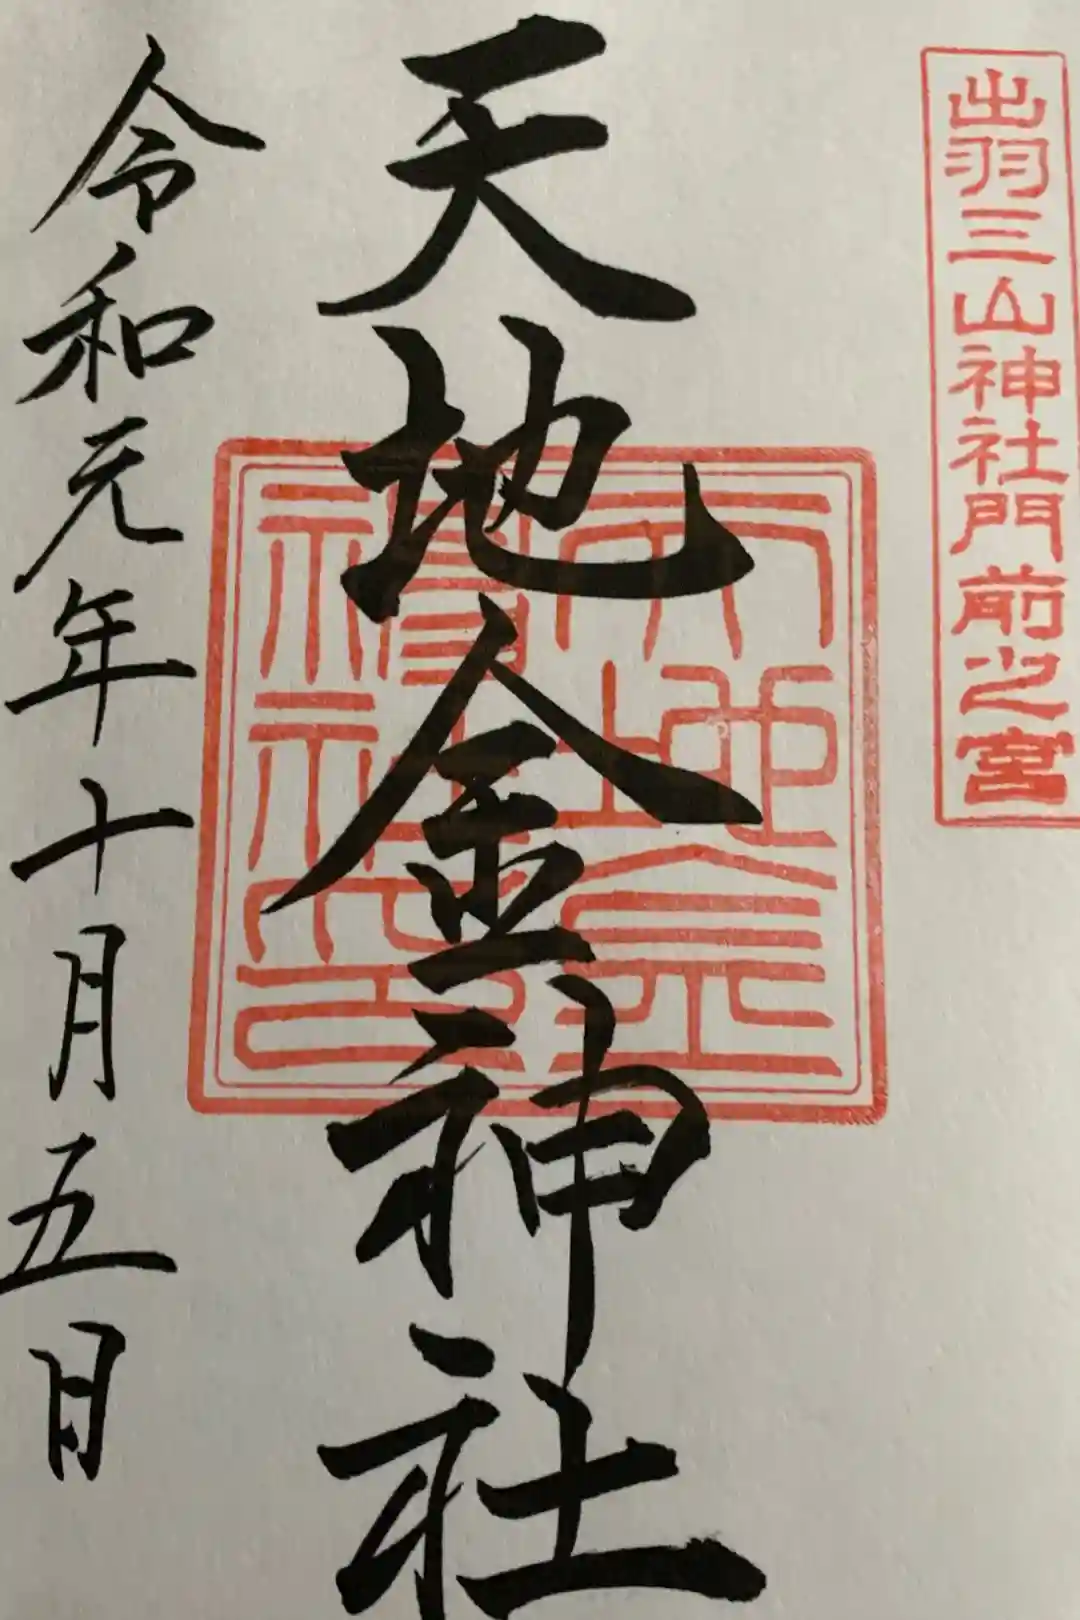 出羽三山神社門前之宮
天地金神社
天地金神社之印
令和元年十月五日